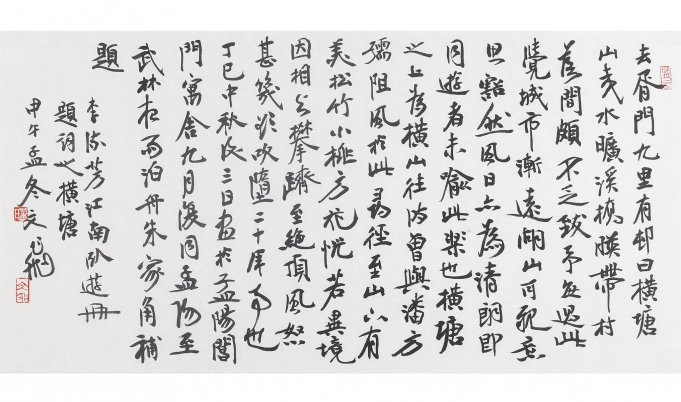 去胥門九里有邨曰橫塘
山夷水曠溪橋映帶村
落間頗不乏致予每過此
覺城市漸遠湖山可親意
思豁然風日亦為清朗即
同遊者未喻此樂也橫塘
之上為橫山往時曾與潘方
孺阻風於此尋徑至山下有
美松竹小桃方花恍若異境
因相与攀躋至絕頂風怒
甚幾欲吹墮二十年事也
丁巳中秋後三日畫於孟陽閶
門寓舍九月復同孟陽至
武林夜雨泊舟朱家角補
題
李流芳江南臥遊冊
題詞之橫塘
甲午孟冬文